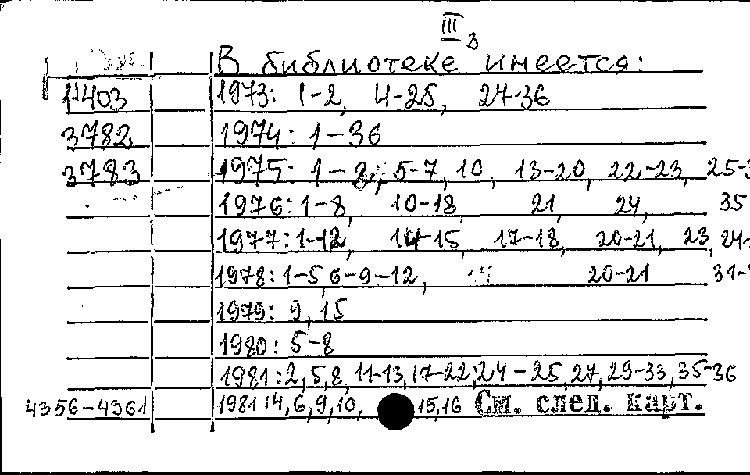 III 3
В библиотеке имеется:
1403 1973: 1-2, 4-25, 27-36
3782 1974: 1-36
3783 1975: 1-2, 5-7, 10, 13-20, 22-23, 25-3
1976: 1-8, 10-18 21, 24, 35
1977: 1-12, 14-15, 17-18, 20-21, 23, 24-
1978: 1-5, 6-9-12, 20-21 31-
1979: 9, 15
1980: 5-8
1981: 2, 5, 8, 11-13, 17-22, 24-25, 27, 29-33, 35-36
4356-4361 1981 14, 6, 9, 10, 15, 16 См. след. карт.